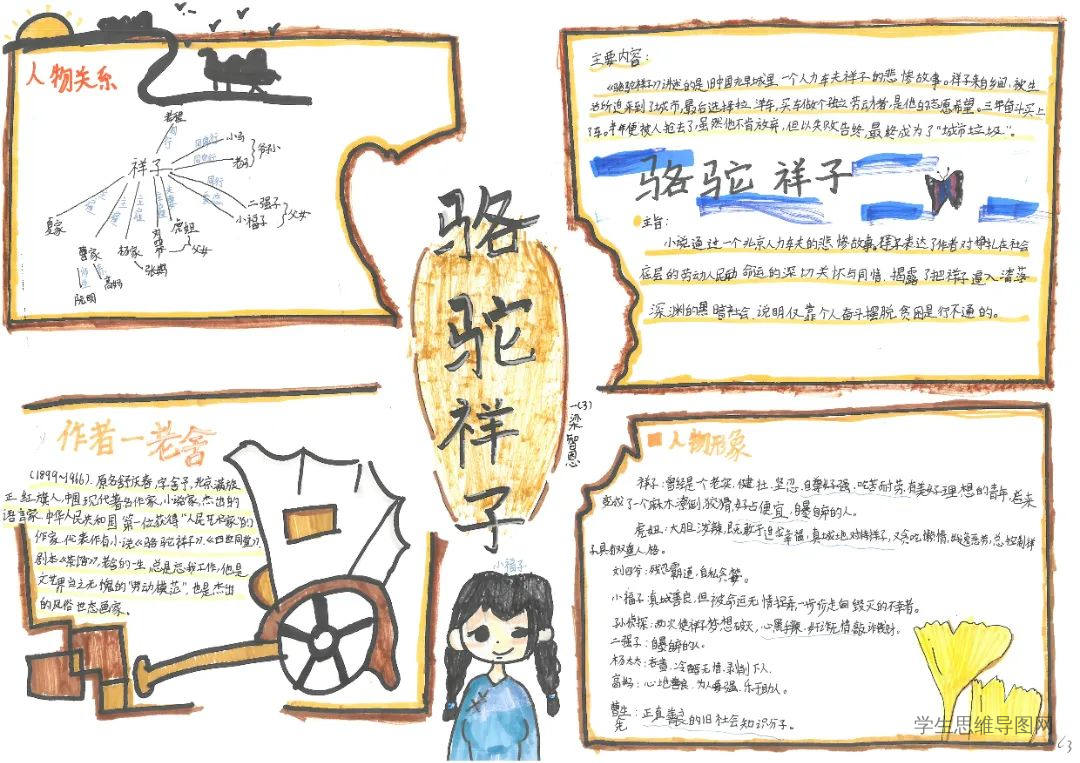 人物关系
老程
同行
祥子
同行
小马
同行
老马
爷孙
同行
二强子
小福子
父女
夫妻
虎妞
刘四爷
父女
夏家
曹家
杨家
张妈
高妈
阮明
骆
驼
祥
子
一(3)
小福子
主要内容：
《骆驼祥子》讲述的是旧中国北平城里一个人力车夫祥子的悲惨故事。祥子来自乡间，被生
活所迫来到了城市，最后选择拉洋车，买车做个独立劳动者，是他的志愿希望。三年奋斗买上
了车。半年便被人抢去了，虽然他不肯放弃，但以失败告终，最终成为了"城市垃圾"。
骆驼祥子
主旨：
小说通过一个北京人力车夫的悲惨故事，表达了作者对挣扎在社会
底层的劳动人民的命运的深切关怀与同情，揭露了把祥子逼入堕落
深渊的黑暗社会，说明仅靠个人奋斗摆脱贫困是行不通的。
作者—老舍
(1899~1966)，原名舒庆春，字舍予，北京满族
正红旗人，中国现代著名作家，小说家，杰出的
语言家，中华人民共和国第一位获得"人民艺术家"的
作家，代表作有小说《骆驼祥子》，《四世同堂》，
剧本《茶馆》，老舍的一生，总是忘我工作，他是
文艺界当之无愧的"劳动模范"，也是杰出
的风俗世态画家。
人物形象
祥子：曾经是个老实，健壮，坚忍，自尊好强，吃苦耐劳，有美好理想的青年，后来
变成了一个麻木潦倒，狡猾，好占便宜，自暴自弃的人。
虎妞：大胆泼辣，既敢于追求幸福，真诚地对待祥子，又贪吃懒惰，好逸恶劳，总控制祥
子具有双重人格。
刘四爷：残忍霸道，自私贪婪。
小福子：真诚善良，但被命运无情捉弄一步步走向毁灭的不幸者。
孙侦探：两次使祥子梦想破灭，心黑手狠，奸诈无情敲诈钱财。
二强子：自暴自弃的人。
杨太太：吝啬，冷酷无情，剥削下人。
高妈：心地善良，为人要强，乐于助人。
曹先生：正直善良的旧社会知识分子。
学生思维导图网